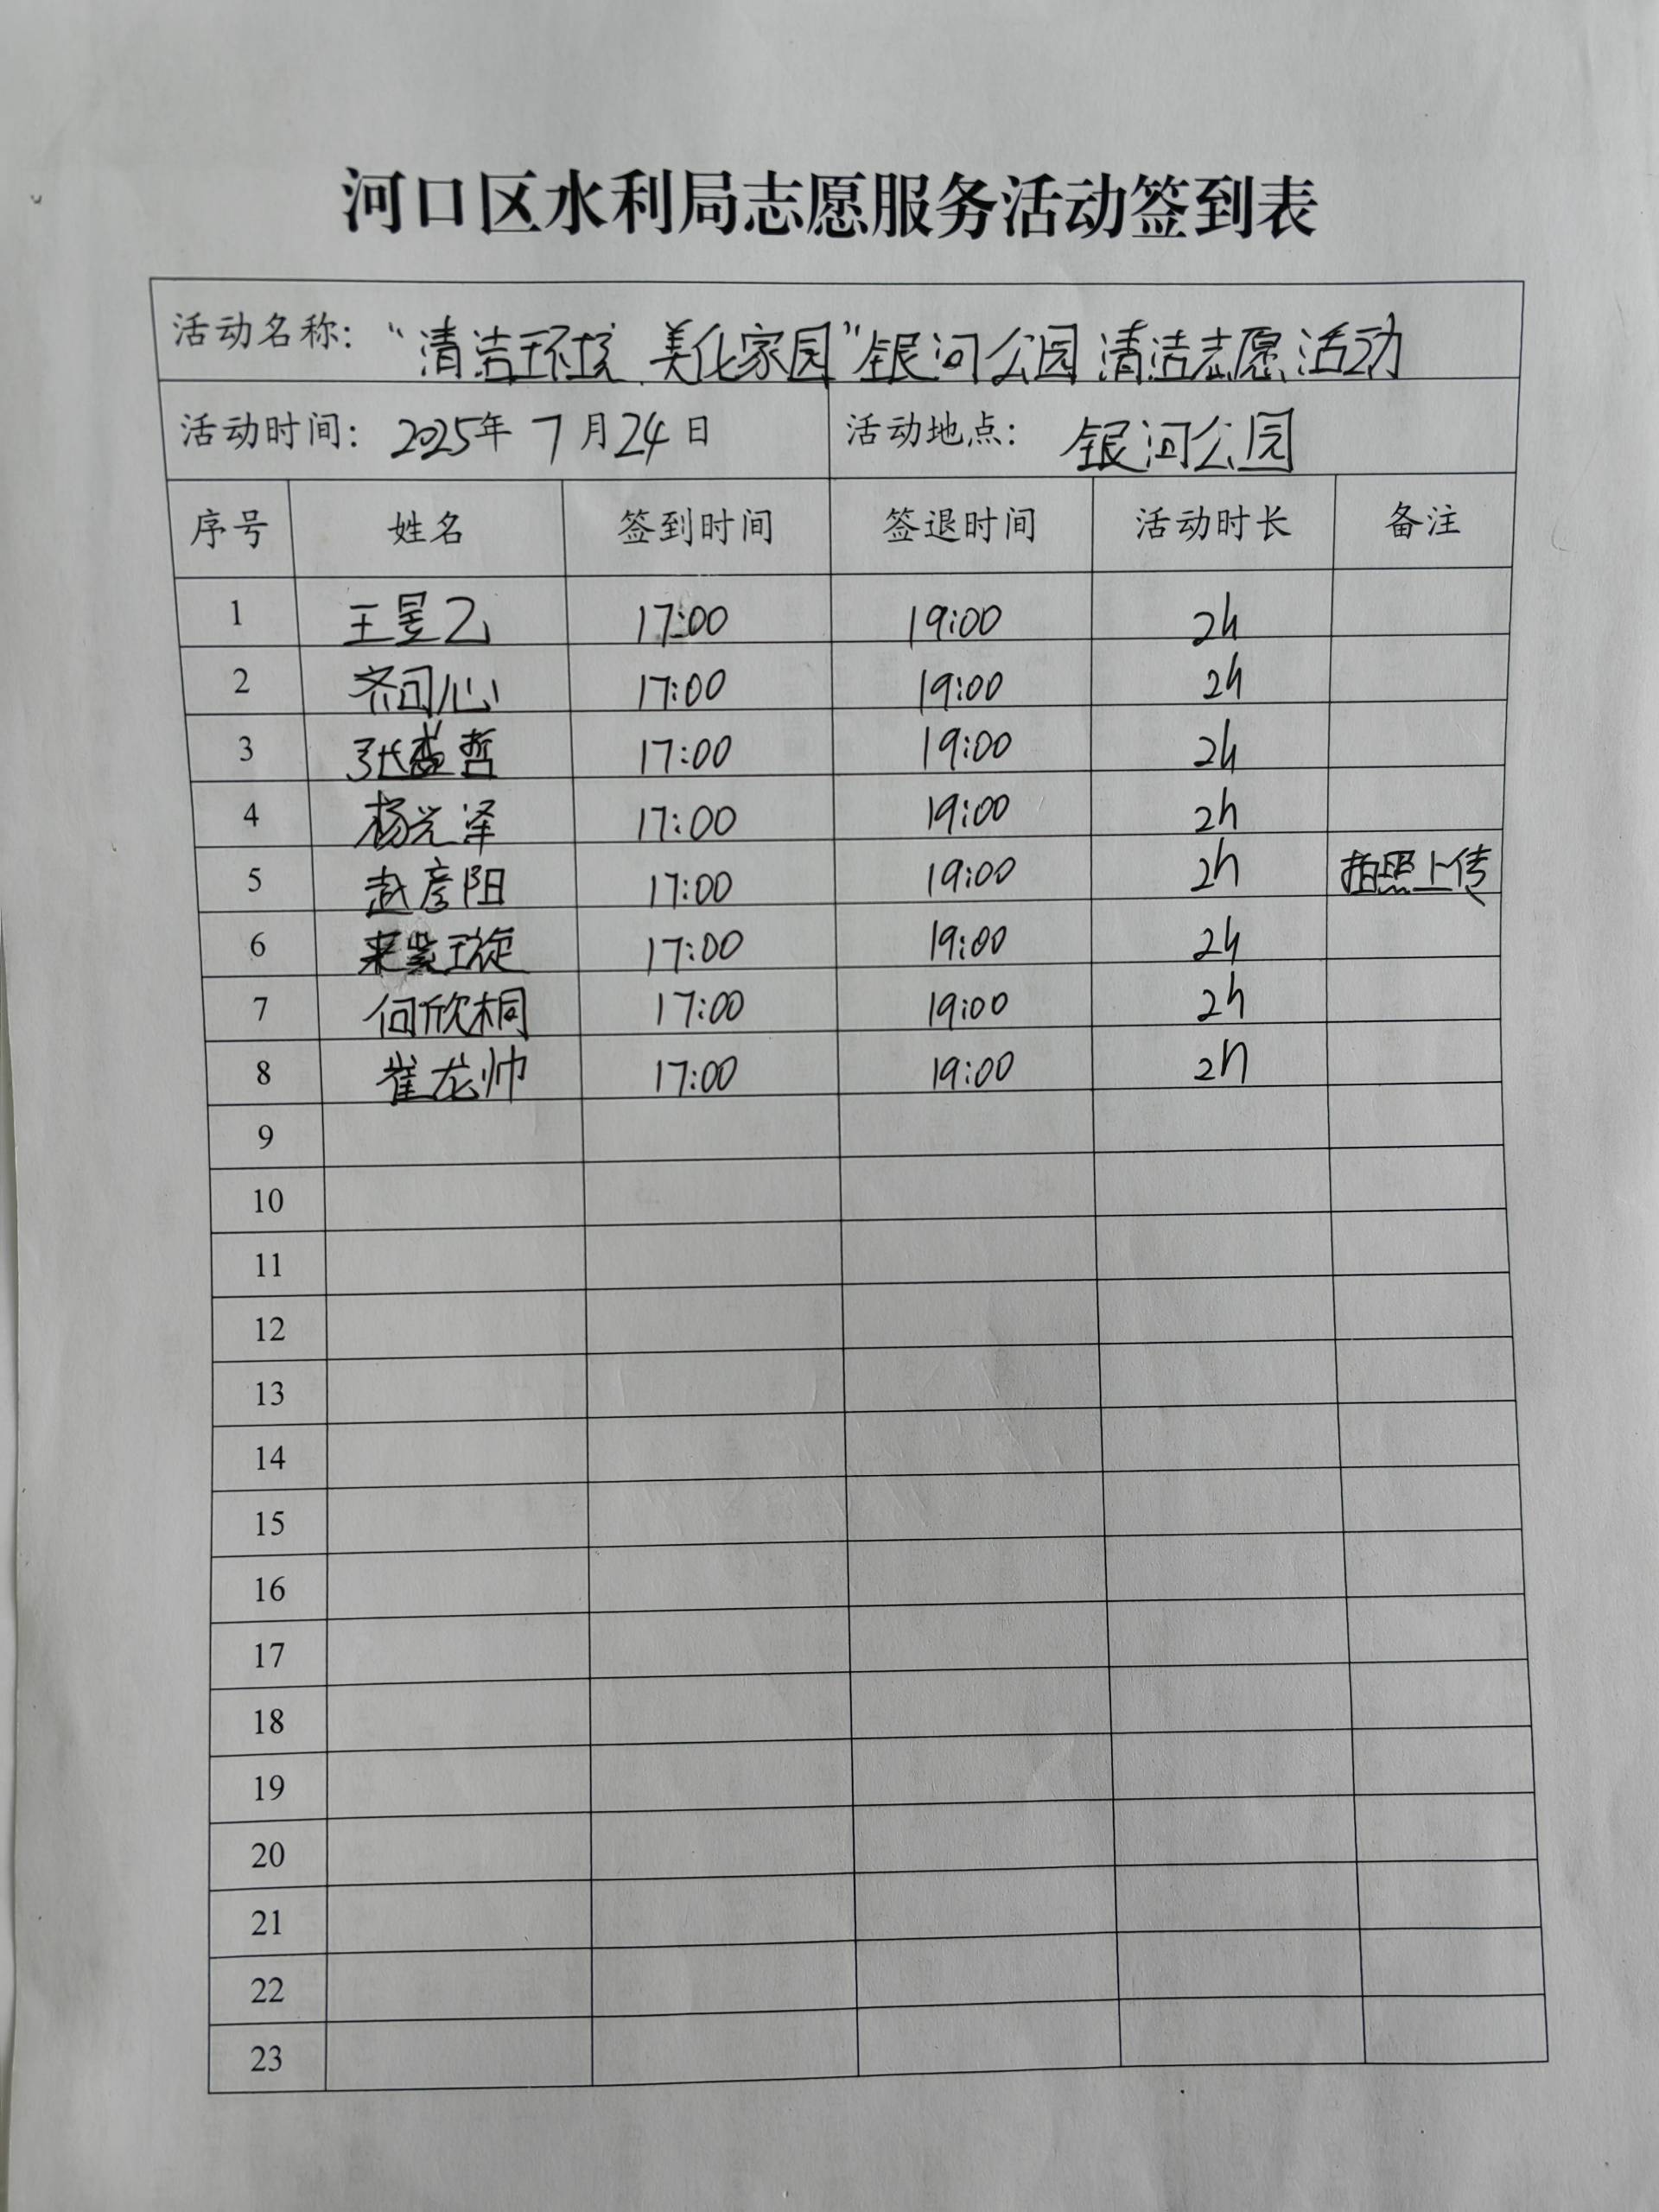 河口区水利局志愿服务活动签到表
活动名称：“清洁环境 美化家园”银河公园清洁志愿活动
活动时间：2025年7月24日 活动地点：银河公园
序号 姓名 签到时间 签退时间 活动时长 备注
1 王昱乙 17:00 19:00 2h
2 齐同心 17:00 19:00 2h
3 17:00 19:00 2h
4 杨光泽 17:00 19:00 2h
5 赵彦阳 17:00 19:00 2h 拍照上传
6 来紫璇 17:00 19:00 2h
7 何欣桐 17:00 19:00 2h
8 崔龙帅 17:00 19:00 2h
9
10
11
12
13
14
15
16
17
18
19
20
21
22
23